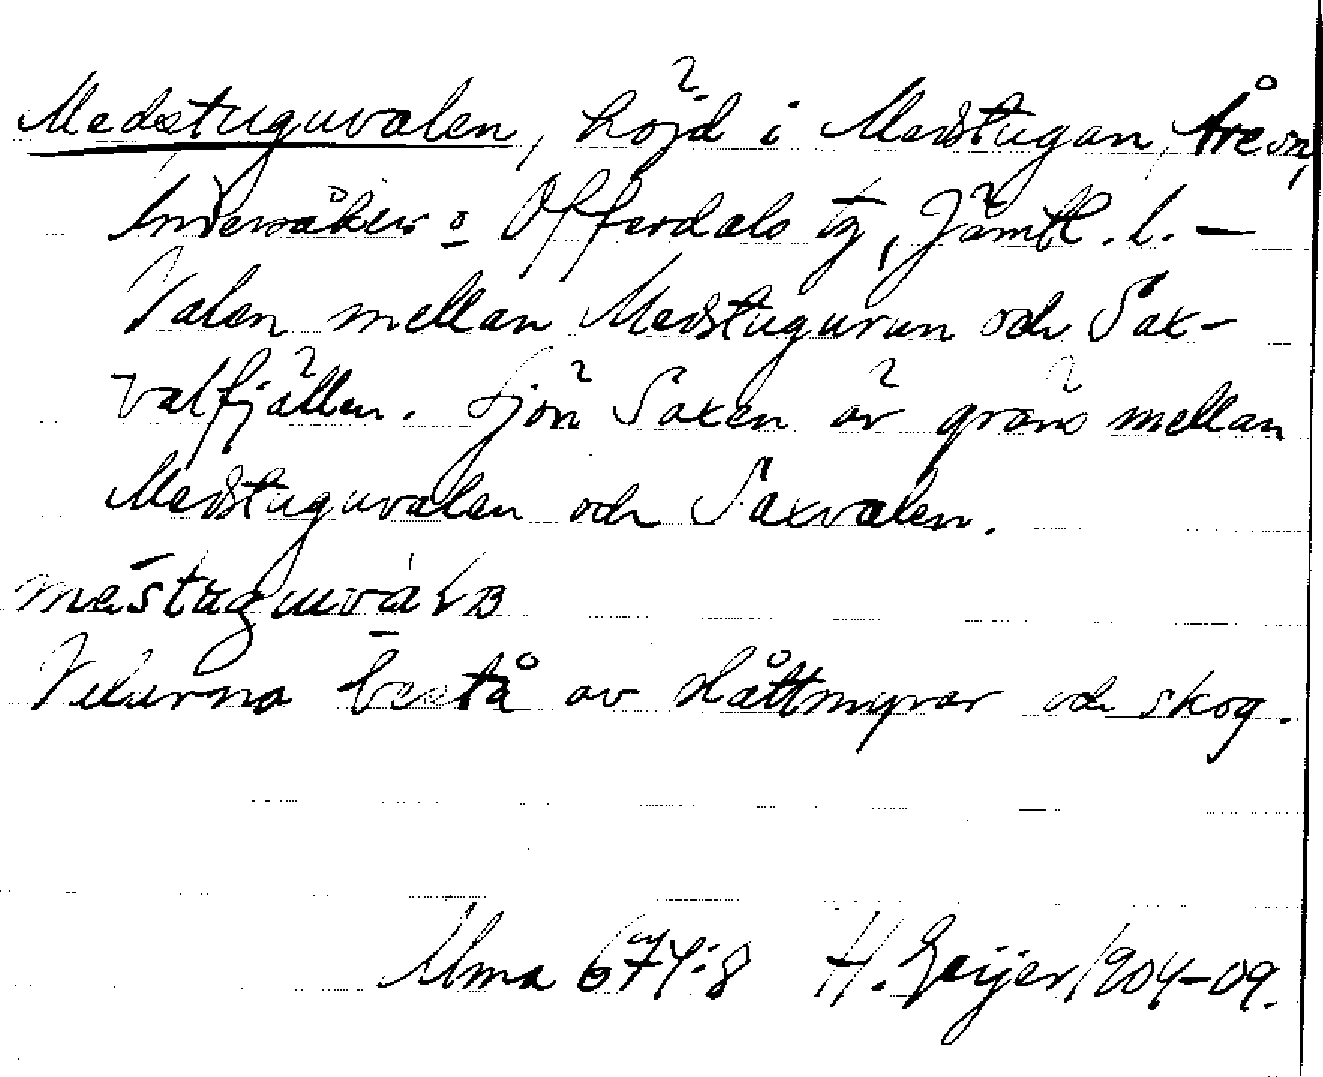 Medstuguvalen, höjd i Medstugan, Åre sn,
Undersåkers o Offerdals tg, Jämtl. l. –
Valen mellan Medstugusun och Sax-
valfjällen. Sjön Saxen är gräns mellan
Medstuguvalen och Saxvalen.
Valarna bestå av slåttmyrar och skog.
Ulma 674:8 H. Geijer 1904–09.